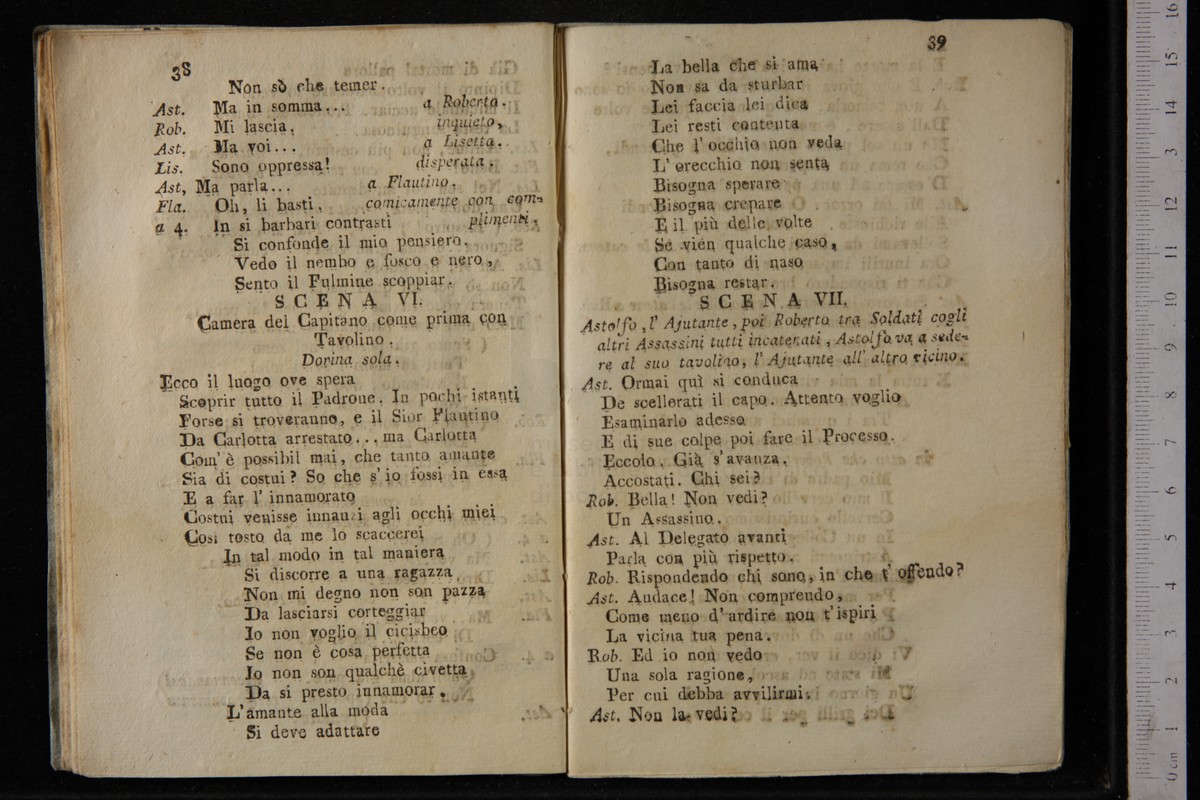 38
Non sò che temer.
Ast. Ma in somma... a Roberto.
Rob. Mi lascia. inquieto,
Ast. Ma voi... a Lisetta.
Lis. Sono oppressa! disperata.
Ast, Ma parla... a Flautino.
Fla. Oh, li basti, comicamente con com-
a 4. In si barbari contrasti plimenti,
Si confonde il mio pensiero.
Vedo il nembo e fosco e nero,
Sento il Fulmine scoppiar.
SCENA VI.
Camera del Capitano come prima con
Tavolino.
Dorina sola.
Ecco il luogo ove spera
Scoprir tutto il Padrone. In pochi istanti
Forse si troveranno, e il Sior Flautino
Da Carlotta arrestato... ma Carlotta
Com' è possibil mai, che tanto amante
Sia di costui? So che s' io fossi in essa
E a far l' innamorato
Costui venisse innanzi agli occhi miei
Cosi tosto da me lo scaccerei
In tal modo in tal maniera
Si discorre a una ragazza,
Non mi degno non son pazza
Da lasciarsi corteggiar
Io non voglio il cicisbeo
Se non è cosa perfetta
Io non son qualchè civetta
Da si presto innamorar.
L' amante alla moda
Si deve adattare
39
La bella che si ama
Non sa da sturbar
Lei faccia lei dica
Lei resti contenta
Che l' occhio non veda
L' orecchio non senta
Bisogna sperare
Bisogna crepare
E il più delle volte
Se vien qualche caso,
Con tanto di naso
Bisogna restar.
SCENA VII.
Astolfo, l' Ajutante, poi Roberto tra Soldati cogli
altri Assassini tutti incatenati, Astolfo va a sede-
re al suo tavolino, l' Ajutante all' altro vicino.
Ast. Ormai quì si conduca
De scellerati il capo. Attento voglio
Esaminarlo adesso
E di sue colpe poi fare il Processo.
Eccolo. Già s' avanza.
Accostati. Chi sei?
Rob. Bella! Non vedi?
Un Assassino.
Ast. Al Delegato avanti
Parla con più rispetto.
Rob. Rispondendo chi sono, in che t' offendo?
Ast. Audace! Non comprendo,
Come meno d' ardire non t' ispiri
La vicina tua pena.
Rob. Ed io non vedo
Una sola ragione,
Per cui debba avvilirmi.
Ast. Non la vedi?
0 cm 1 2 3 4 5 6 7 8 9 10 11 12 13 14 15 16